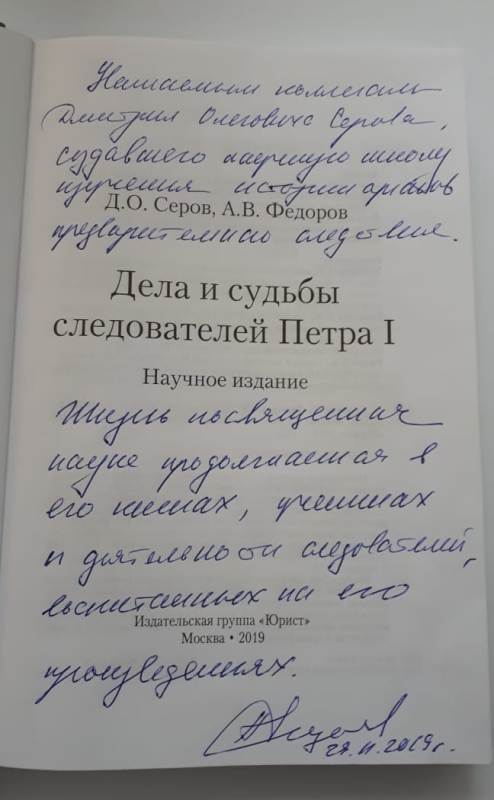 Уважаемым коллегам
Дмитрия Олеговича Серова,
создавшего научную школу
изучения истории органов
Д.О. Серов, А.В. Федоров
предварительного следствия.
Дела и судьбы
следователей Петра I
Научное издание
Жизнь посвященная
науке продолжается в
его книгах, учениках
и деятельности следователей,
воспитанных на его
Издательская группа «Юрист»
Москва • 2019
произведениях.
29.11.2019г.